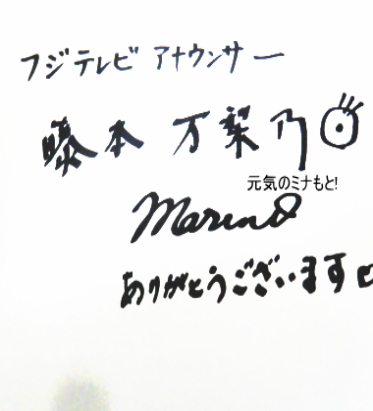 フジテレビ アナウンサー
藤本 万梨乃
元気のミナもと!
Marino
ありがとうございます